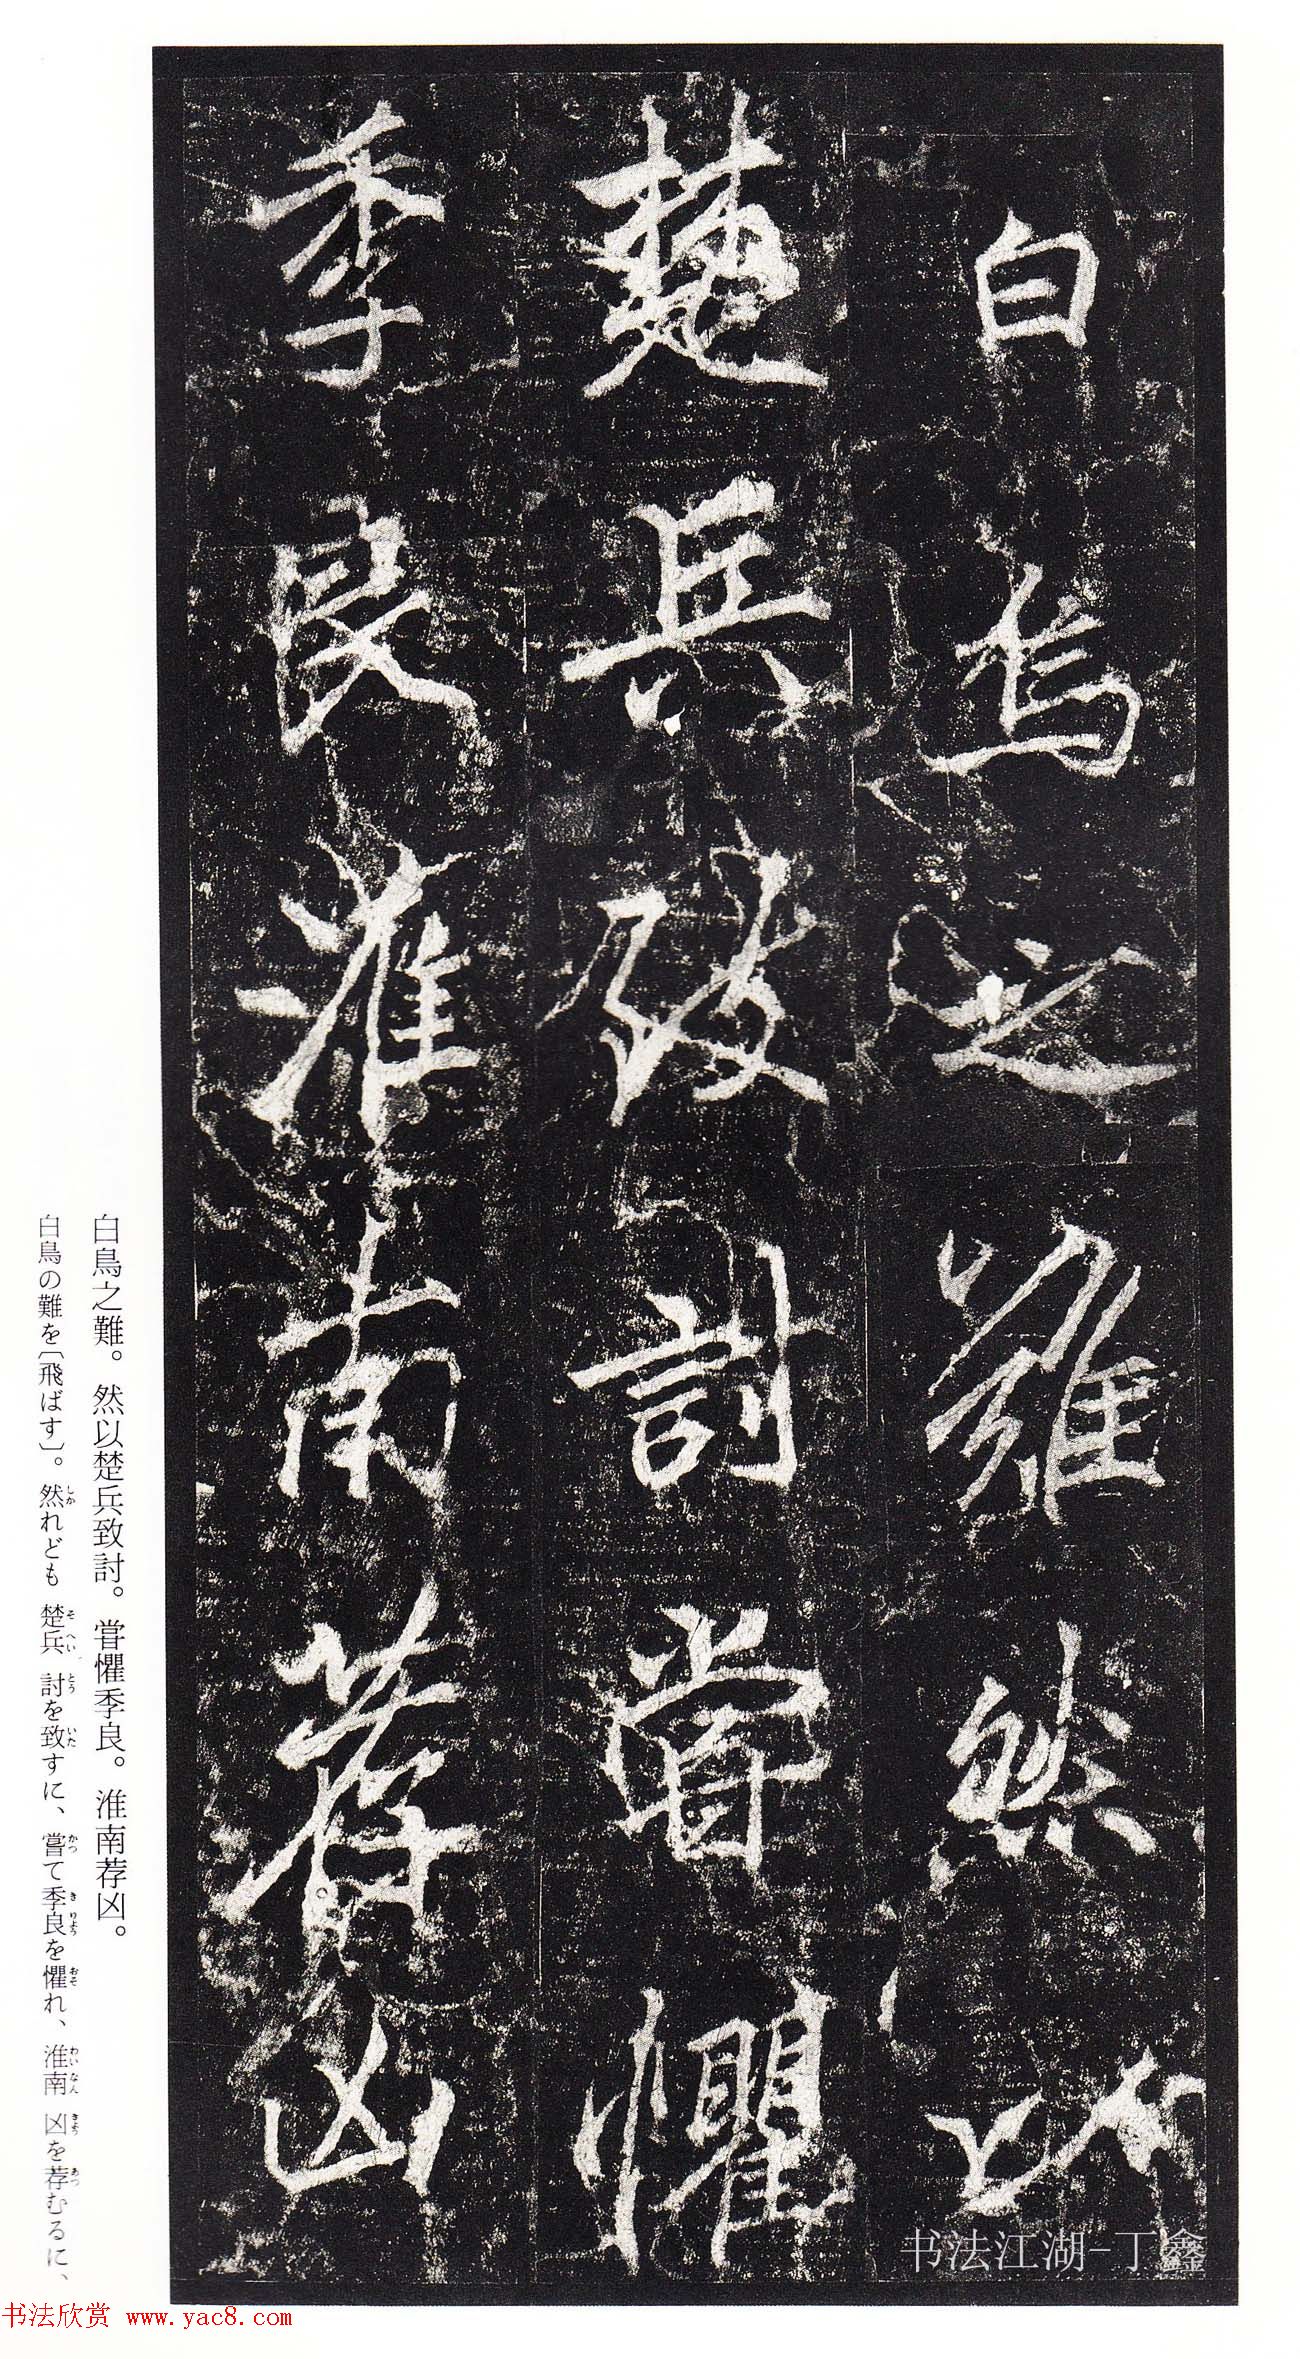 白鳥之難然以
楚兵致討甞懼
季良淮南荐凶
白鳥之難。然以楚兵致討。甞懼季良。淮南荐凶。
白鳥の難を〔飛ばす〕。然れども 楚兵 討を致すに、嘗て季良を懼れ、淮南 凶を荐むるに、
书法江湖-丁鑫
书法欣赏 www.yac8.com